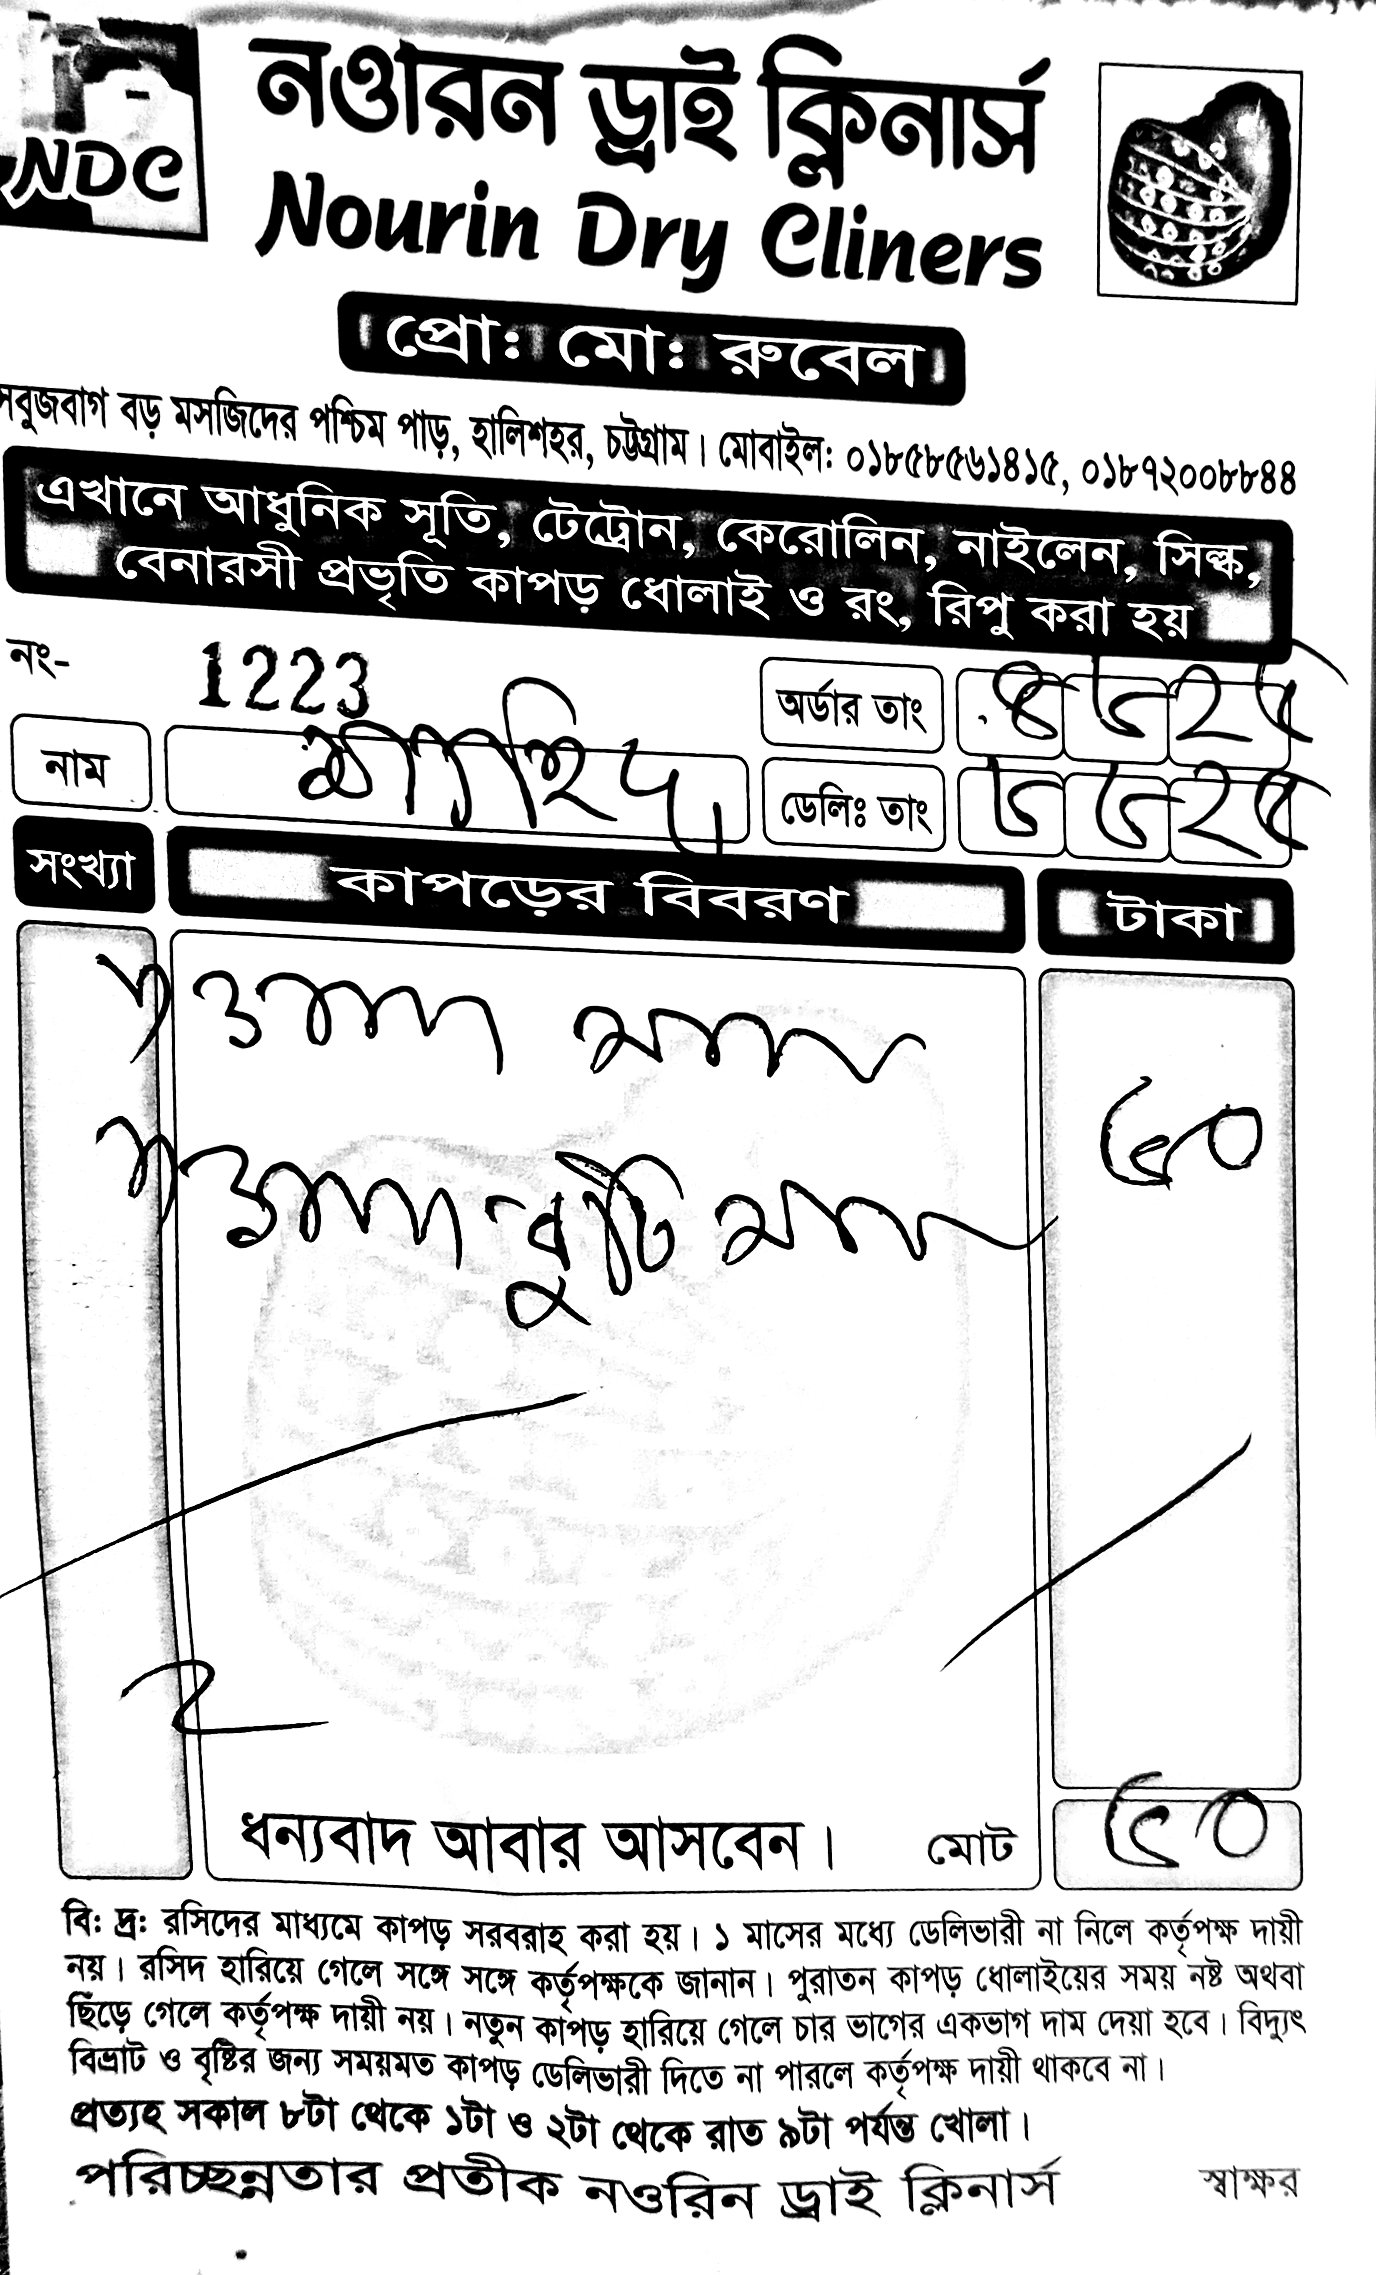 NDC
নওারন ড্রাই ক্লিনার্স
Nourin Dry Cliners
প্রোঃ মোঃ রুবেল
সবুজবাগ বড় মসজিদের পশ্চিম পাড়, হালিশহর, চট্টগ্রাম। মোবাইল: ০১৮৫৮৫৬১৪১৫, ০১৮৭২০০৮৮৪৪
এখানে আধুনিক সূতি, টেট্রোন, কেরোলিন, নাইলেন, সিল্ক,
বেনারসী প্রভৃতি কাপড় ধোলাই ও রং, রিপু করা হয়
নং- 1223
অর্ডার তাং ৪ ৮ ২৫
নাম
ডেলিঃ তাং ৮ ৮ ২৫
সংখ্যা কাপড়ের বিবরণ টাকা
১
৫০
১
২
ধন্যবাদ আবার আসবেন। মোট ৫০
বি: দ্র: রসিদের মাধ্যমে কাপড় সরবরাহ করা হয়। ১ মাসের মধ্যে ডেলিভারী না নিলে কর্তৃপক্ষ দায়ী
নয়। রসিদ হারিয়ে গেলে সঙ্গে সঙ্গে কর্তৃপক্ষকে জানান। পুরাতন কাপড় ধোলাইয়ের সময় নষ্ট অথবা
ছিঁড়ে গেলে কর্তৃপক্ষ দায়ী নয়। নতুন কাপড় হারিয়ে গেলে চার ভাগের একভাগ দাম দেয়া হবে। বিদ্যুৎ
বিভ্রাট ও বৃষ্টির জন্য সময়মত কাপড় ডেলিভারী দিতে না পারলে কর্তৃপক্ষ দায়ী থাকবে না।
প্রত্যহ সকাল ৮টা থেকে ১টা ও ২টা থেকে রাত ৯টা পর্যন্ত খোলা।
পরিচ্ছন্নতার প্রতীক নওরিন ড্রাই ক্লিনার্স স্বাক্ষর